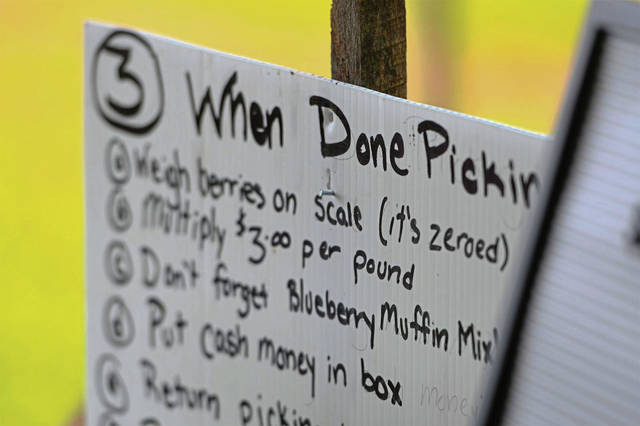 3 When Done Pickin
a Weigh berries on scale (it's zeroed)
b Multiply $3.00 per pound
c Don't forget Blueberry Muffin Mix!
d Put cash money in box money
e Return pickin